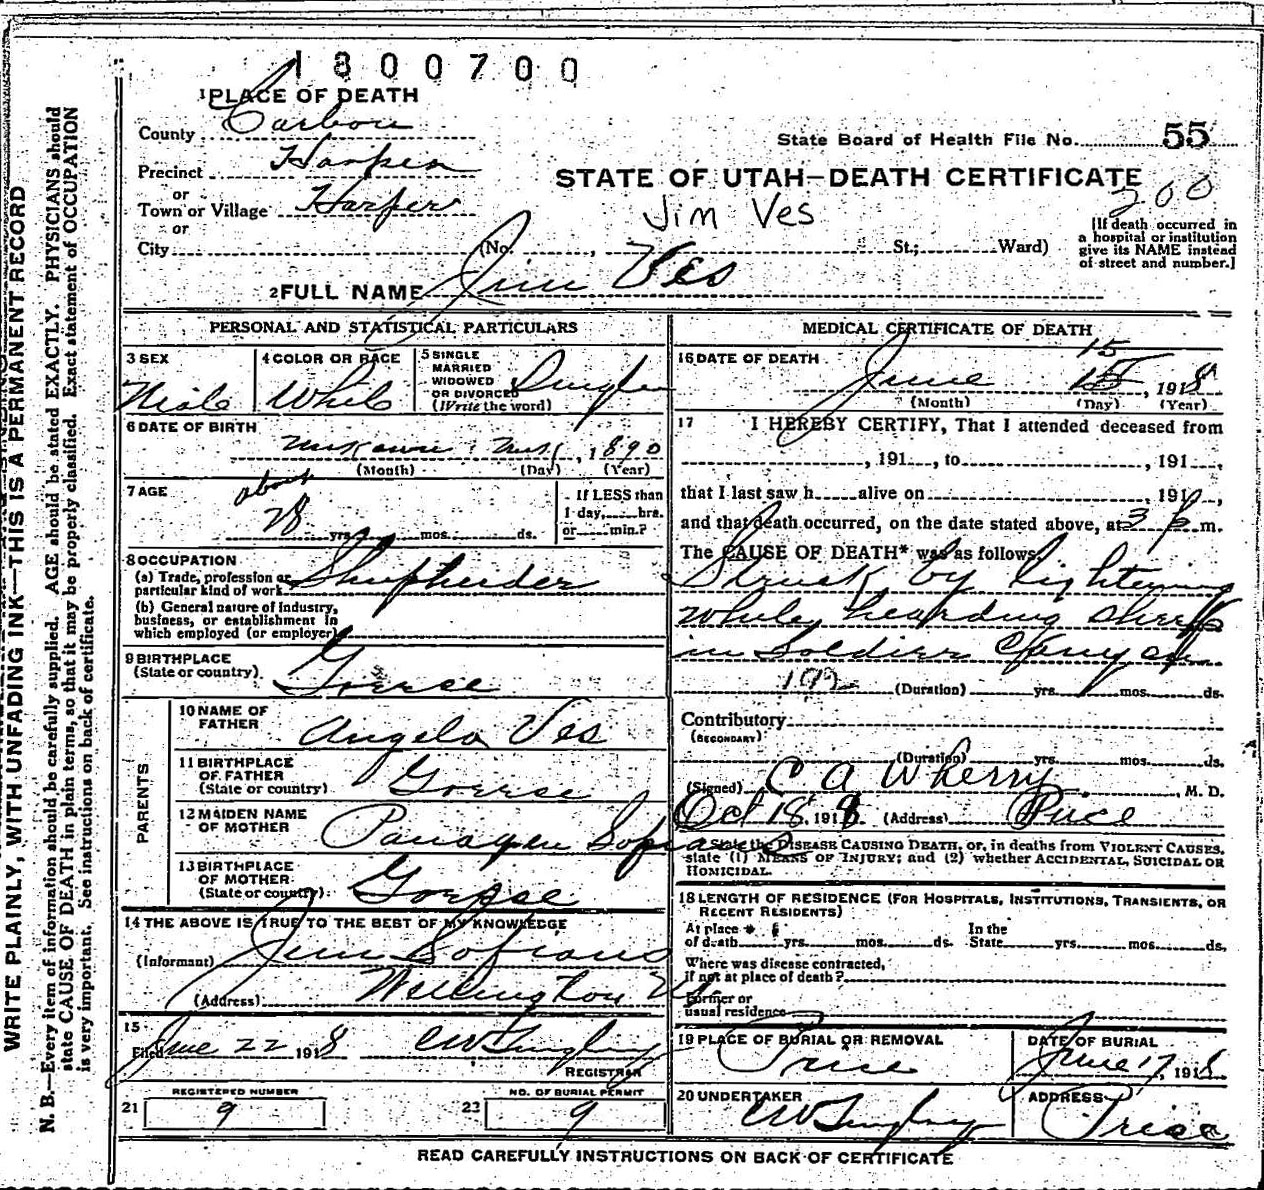 1800700
1 PLACE OF DEATH
County Carbon
State Board of Health File No. 55
Precinct Harper
or
Town or Village Harper
or
City
STATE OF UTAH—DEATH CERTIFICATE
200
Jim Ves
(No. , St.; Ward)
[If death occurred in
a hospital or institution
give its NAME instead
of street and number.]
2 FULL NAME Jim Ves
PERSONAL AND STATISTICAL PARTICULARS
3 SEX
Male
4 COLOR OR RACE
White
5 SINGLE
MARRIED
WIDOWED
OR DIVORCED
(Write the word)
Single
6 DATE OF BIRTH
, 1890
(Month) (Day) (Year)
7 AGE
about
28 yrs. mos. ds.
If LESS than
1 day, hrs.
or min.?
8 OCCUPATION
(a) Trade, profession or
particular kind of work Shepherder
(b) General nature of industry,
business, or establishment in
which employed (or employer)
9 BIRTHPLACE
(State or country) Greese
PARENTS
10 NAME OF
FATHER
Angelo Ves
11 BIRTHPLACE
OF FATHER
(State or country)
Greese
12 MAIDEN NAME
OF MOTHER
13 BIRTHPLACE
OF MOTHER
(State or country)
Greese
14 THE ABOVE IS TRUE TO THE BEST OF MY KNOWLEDGE
(Informant) Jim Sofianos
(Address) Wellington
15
Filed June 22 1918
REGISTRAR
21 REGISTERED NUMBER
9
22 NO. OF BURIAL PERMIT
9
MEDICAL CERTIFICATE OF DEATH
16 DATE OF DEATH
15
June 15, 1918
(Month) (Day) (Year)
17 I HEREBY CERTIFY, That I attended deceased from
, 191 , to , 191 ,
that I last saw h alive on , 191 ,
and that death occurred, on the date stated above, at 3 p m.
The CAUSE OF DEATH* was as follows:
Struck by lightening
while hearding sheep
in Soldier Canyon
192 (Duration) yrs. mos. ds.
Contributory
(SECONDARY)
(Duration) yrs. mos. ds.
(Signed) C A Wherry, M. D.
Oct 18, 1918. (Address) Price
*State the DISEASE CAUSING DEATH, or, in deaths from VIOLENT CAUSES,
state (1) MEANS OF INJURY; and (2) whether ACCIDENTAL, SUICIDAL OR
HOMICIDAL.
18 LENGTH OF RESIDENCE (FOR HOSPITALS, INSTITUTIONS, TRANSIENTS, OR
RECENT RESIDENTS)
At place
of death yrs. mos. ds.
In the
State yrs. mos. ds.
Where was disease contracted,
if not at place of death?
Former or
usual residence
19 PLACE OF BURIAL OR REMOVAL
Price
DATE OF BURIAL
June 17, 1918
20 UNDERTAKER
ADDRESS
Price
READ CAREFULLY INSTRUCTIONS ON BACK OF CERTIFICATE
WRITE PLAINLY, WITH UNFADING INK—THIS IS A PERMANENT RECORD
N. B.—Every item of information should be carefully supplied. AGE should be stated EXACTLY. PHYSICIANS should
state CAUSE OF DEATH in plain terms, so that it may be properly classified. Exact statement of OCCUPATION
is very important. See instructions on back of certificate.